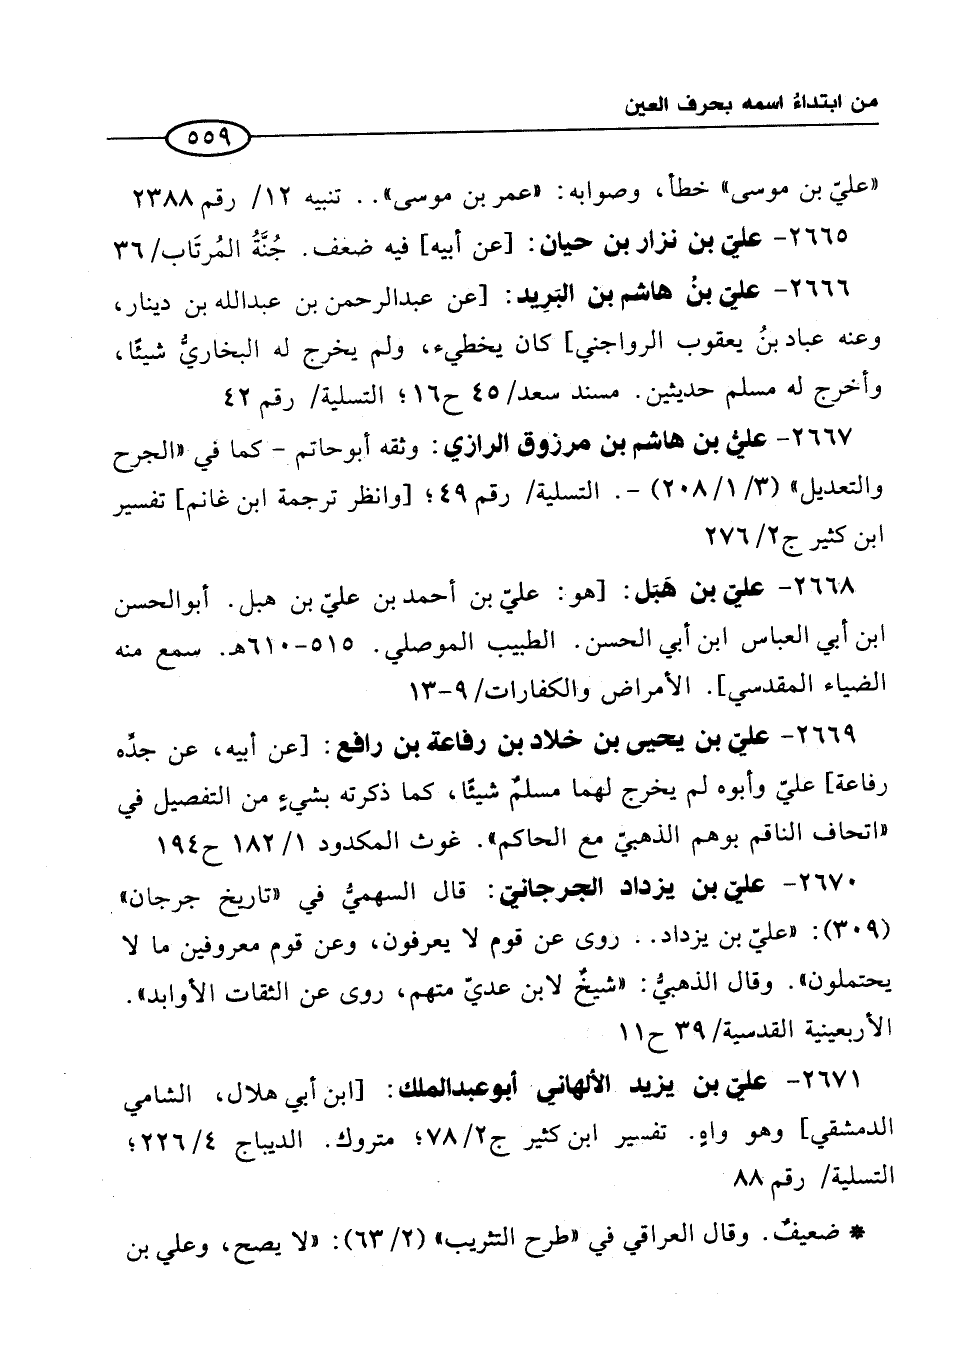 من ابتداءُ اسمه بحرف العين
٥٥٩
«عليّ بن موسى» خطأ، وصوابه: «عمر بن موسى».. تنبيه ١٢/ رقم ٢٣٨٨
٢٦٦٥- عليّ بن نزار بن حيان: [عن أبيه] فيه ضعف. جُنَّةُ المُرتَاب/ ٣٦
٢٦٦٦- عليّ بنُ هاشم بن البَرِيد: [عن عبدالرحمن بن عبدالله بن دينار،
وعنه عباد بنُ يعقوب الرواجني] كان يخطيء، ولم يخرج له البخاريُّ شيئًا،
وأخرج له مسلم حديثين. مسند سعد/ ٤٥ ح١٦؛ التسلية/ رقم ٤٢
٢٦٦٧- عليُّ بن هاشم بن مرزوق الرازي: وثقه أبوحاتم - كما في «الجرح
والتعديل» (٢٠٨/١/٣) -. التسلية/ رقم ٤٩؛ [وانظر ترجمة ابن غانم] تفسير
ابن كثير ج٢/ ٢٧٦
٢٦٦٨- عليّ بن هَبَل: [هو: عليّ بن أحمد بن عليّ بن هبل. أبوالحسن
ابن أبي العباس ابن أبي الحسن. الطبيب الموصلي. ٥١٥-٦١٠هـ. سمع منه
الضياء المقدسي]. الأمراض والكفارات/ ٩-١٣
٢٦٦٩- عليّ بن يحيى بن خلاد بن رفاعة بن رافع: [عن أبيه، عن جدِّه
رفاعة] عليّ وأبوه لم يخرج لهما مسلمٌ شيئًا، كما ذكرته بشيءٍ من التفصيل في
«اتحاف الناقم بوهم الذهبيّ مع الحاكم». غوث المكدود ١/ ١٨٢ ح١٩٤
٢٦٧٠- عليّ بن يزداد الجرجانيّ: قال السهميُّ في «تاريخ جرجان»
(٣٠٩): «عليّ بن يزداد.. روى عن قوم لا يعرفون، وعن قوم معروفين ما لا
يحتملون». وقال الذهبيُّ: «شيخٌ لابن عديّ متهم، روى عن الثقات الأوابد».
الأربعينية القدسية/ ٣٩ ح١١
٢٦٧١- عليّ بن يزيد الألهاني أبوعبدالملك: [ابن أبي هلال، الشامي
الدمشقي] وهو واهٍ. تفسير ابن كثير ج٢/ ٧٨؛ متروك. الديباج ٤/ ٢٢٦؛
التسلية/ رقم ٨٨
* ضعيفٌ. وقال العراقي في «طرح التثريب» (٢/ ٦٣): «لا يصح، وعلي بن